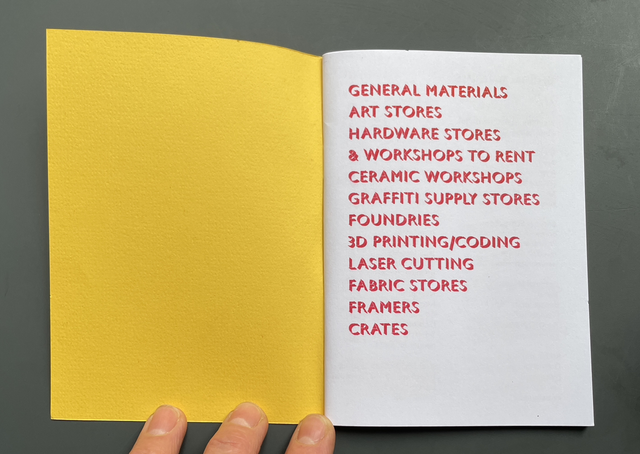 GENERAL MATERIALS
ART STORES
HARDWARE STORES
& WORKSHOPS TO RENT
CERAMIC WORKSHOPS
GRAFFITI SUPPLY STORES
FOUNDRIES
3D PRINTING/CODING
LASER CUTTING
FABRIC STORES
FRAMERS
CRATES